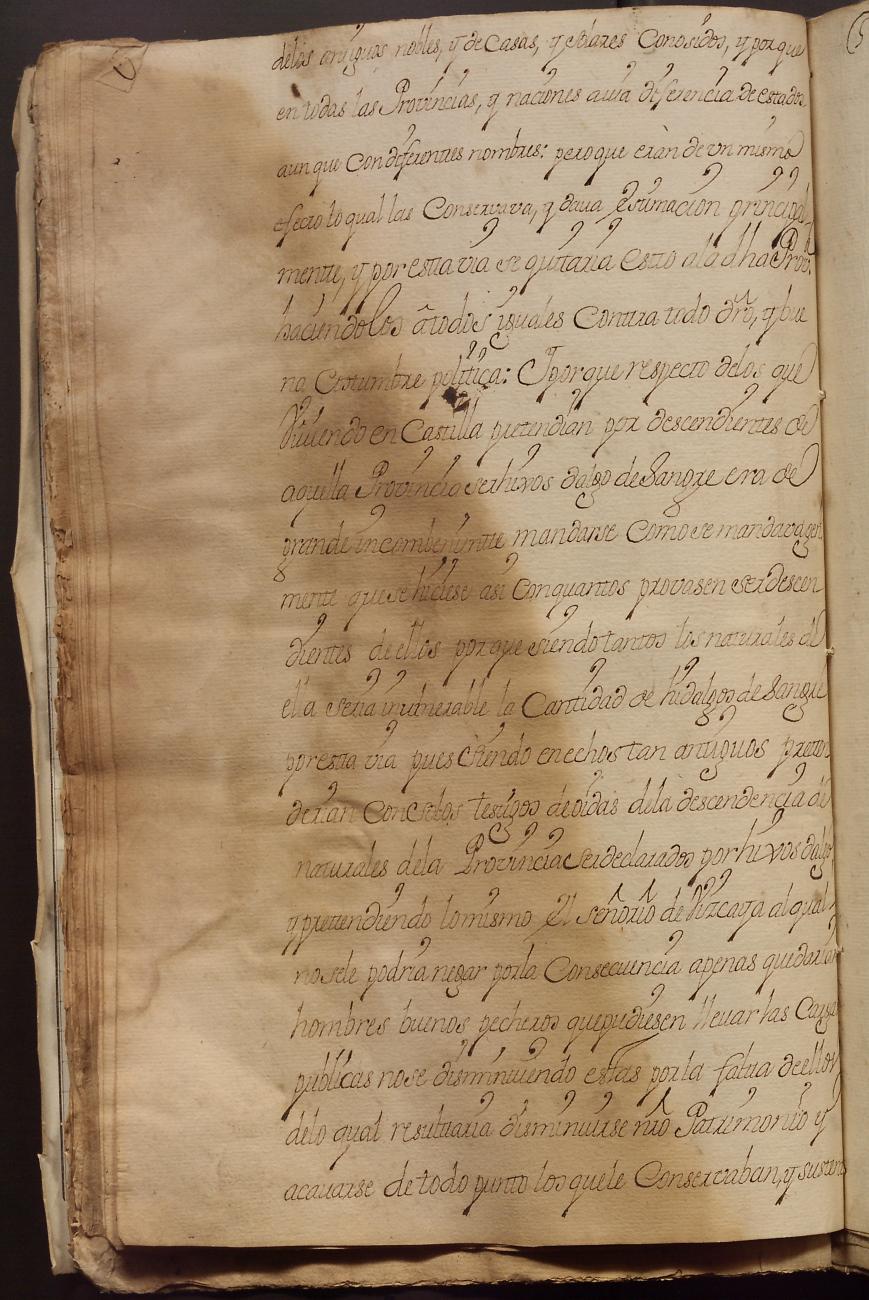 delos antiguos nobles, y de Casas, y solares Conosidos, y porque
en todas las Provincias, y naciones auia diferencia de estados
aun que Con diferentes nombres: pero que eran de vn mismo
efecto lo qual las Conservava, y daua estimacion principal
mente, y por esta via se quitaria esto ala dha Prov.ª
haciendolos a todos iguales Contra todo dro, y bue
na Costumbre politica: Y porque respecto delos que
Viuiendo en Castilla pretendian por descendientes de
aquella Provincia ser hixos dalgo de Sangre era de
grande incombeniente mandarse Como se mandava gen
mente que se hiciese asi Con quantos provasen ser descen
dientes de ellos porque siendo tantos los naturales de
ella seria inumerable la Cantidad de hidalgos de Sangre
por esta via pues siendo en echos tan antiguos preten
derian Con solos testigos de oidas dela descendencia de
naturales dela Provincia ser declarados por hixos dalgo
y pretendiendo lo mismo El señorio de Vizcaya al qual
no sele podria negar por la Consecuencia apenas quedarian
hombres buenos pecheros que pudiesen lleuar las Cargas
publicas no se disminuiendo estas por la falta de ellos
delo qual resultaria disminuirse nro Patrimonio y
acauarse de todo punto los que le Conservaban, y sustent